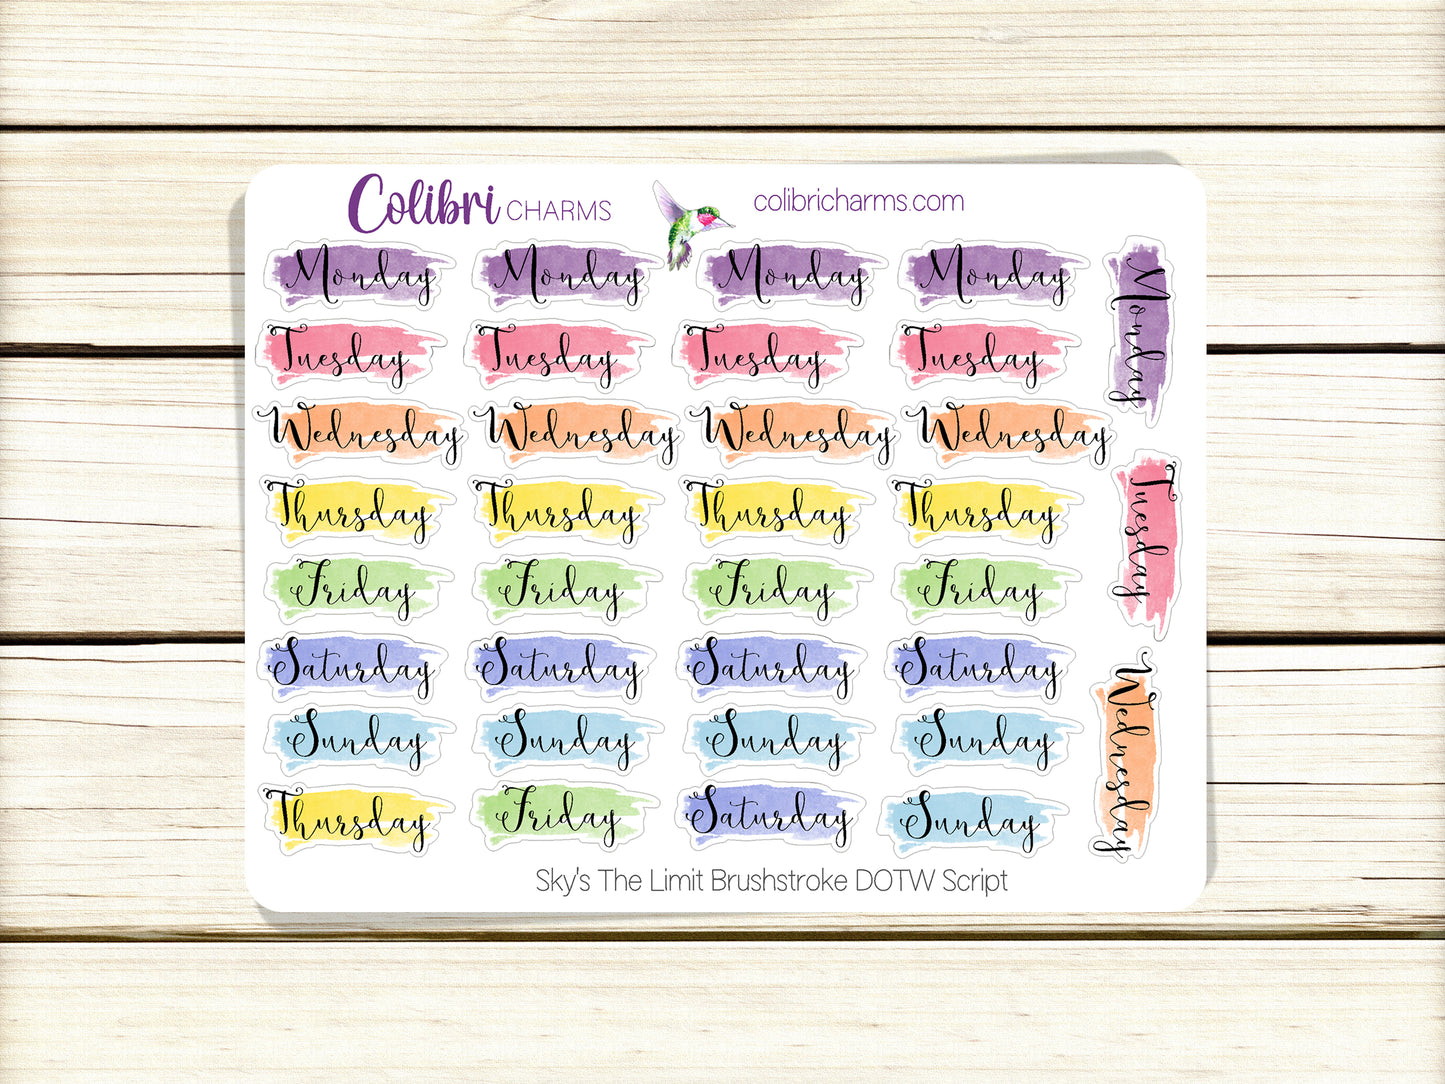 Colibri CHARMS colibricharms.com
Monday Monday Monday Monday
Tuesday Tuesday Tuesday Tuesday
Wednesday Wednesday Wednesday Wednesday
Thursday Thursday Thursday Thursday
Friday Friday Friday Friday
Saturday Saturday Saturday Saturday
Sunday Sunday Sunday Sunday
Thursday Friday Saturday Sunday
Monday
Tuesday
Wednesday
Sky's The Limit Brushstroke DOTW Script